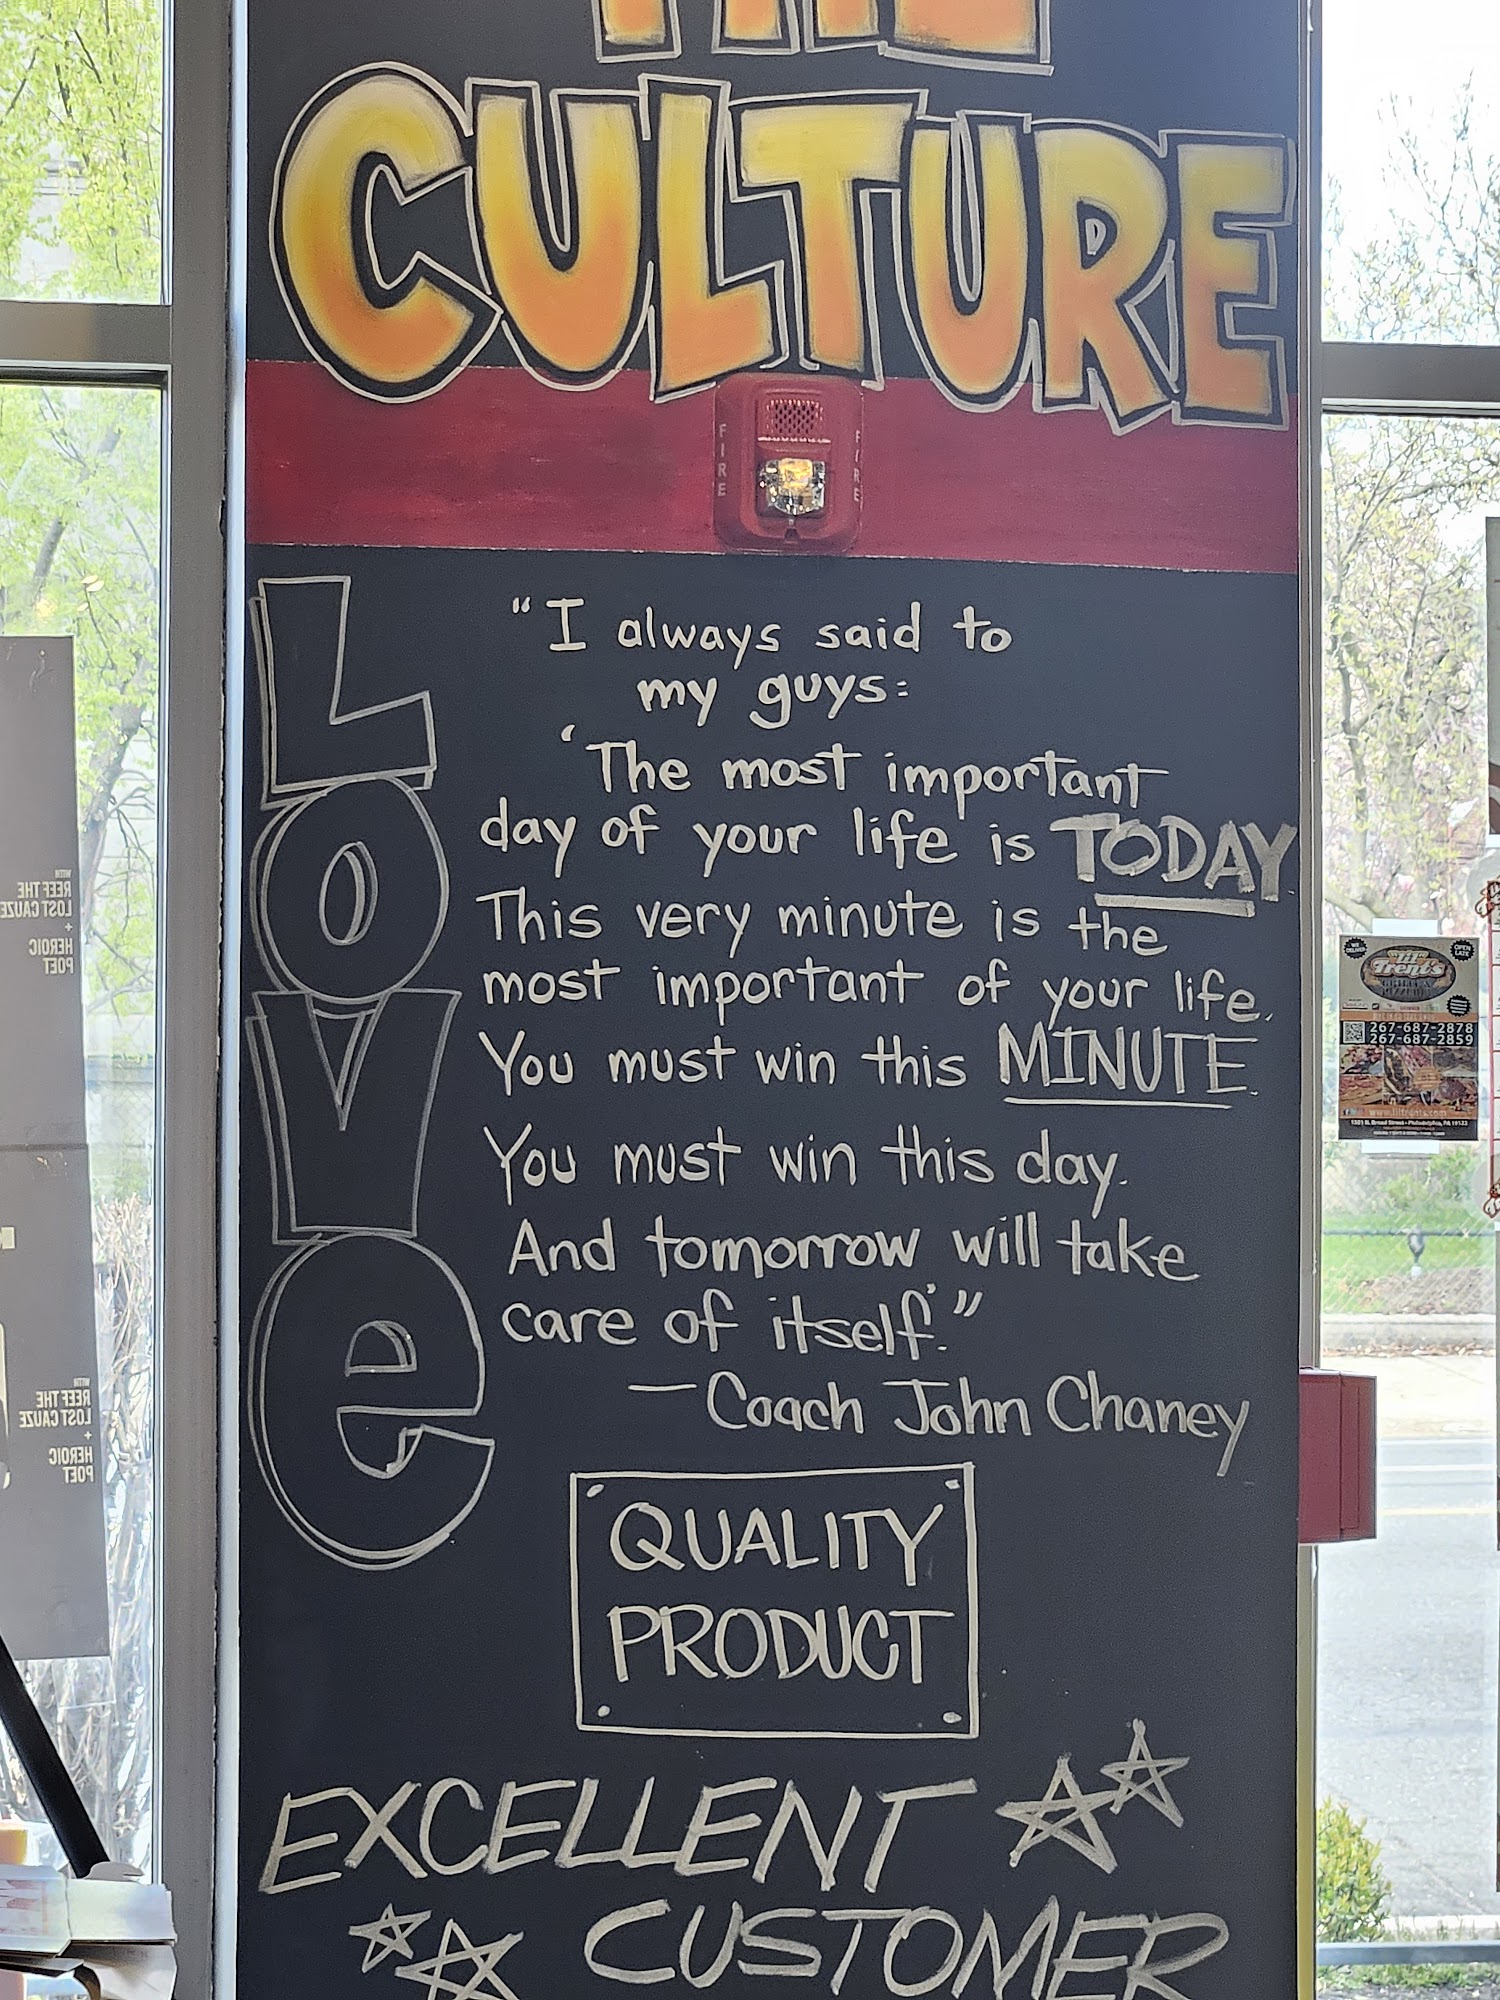 THE
CULTURE
FIRE
FIRE
LOVe
"I always said to
my guys:
'The most important
day of your life is TODAY.
This very minute is the
most important of your life.
You must win this MINUTE.
You must win this day.
And tomorrow will take
care of itself.'"
—Coach John Chaney
QUALITY
PRODUCT
EXCELLENT
CUSTOMER
WITH
REEF THE
LOST CAUZE
+
HEROIC
POET
WITH
REEF THE
LOST CAUZE
+
HEROIC
POET
WE DELIVER
OPEN LATE
lil Trent's
267-687-2878
267-687-2859
www.liltrents.com